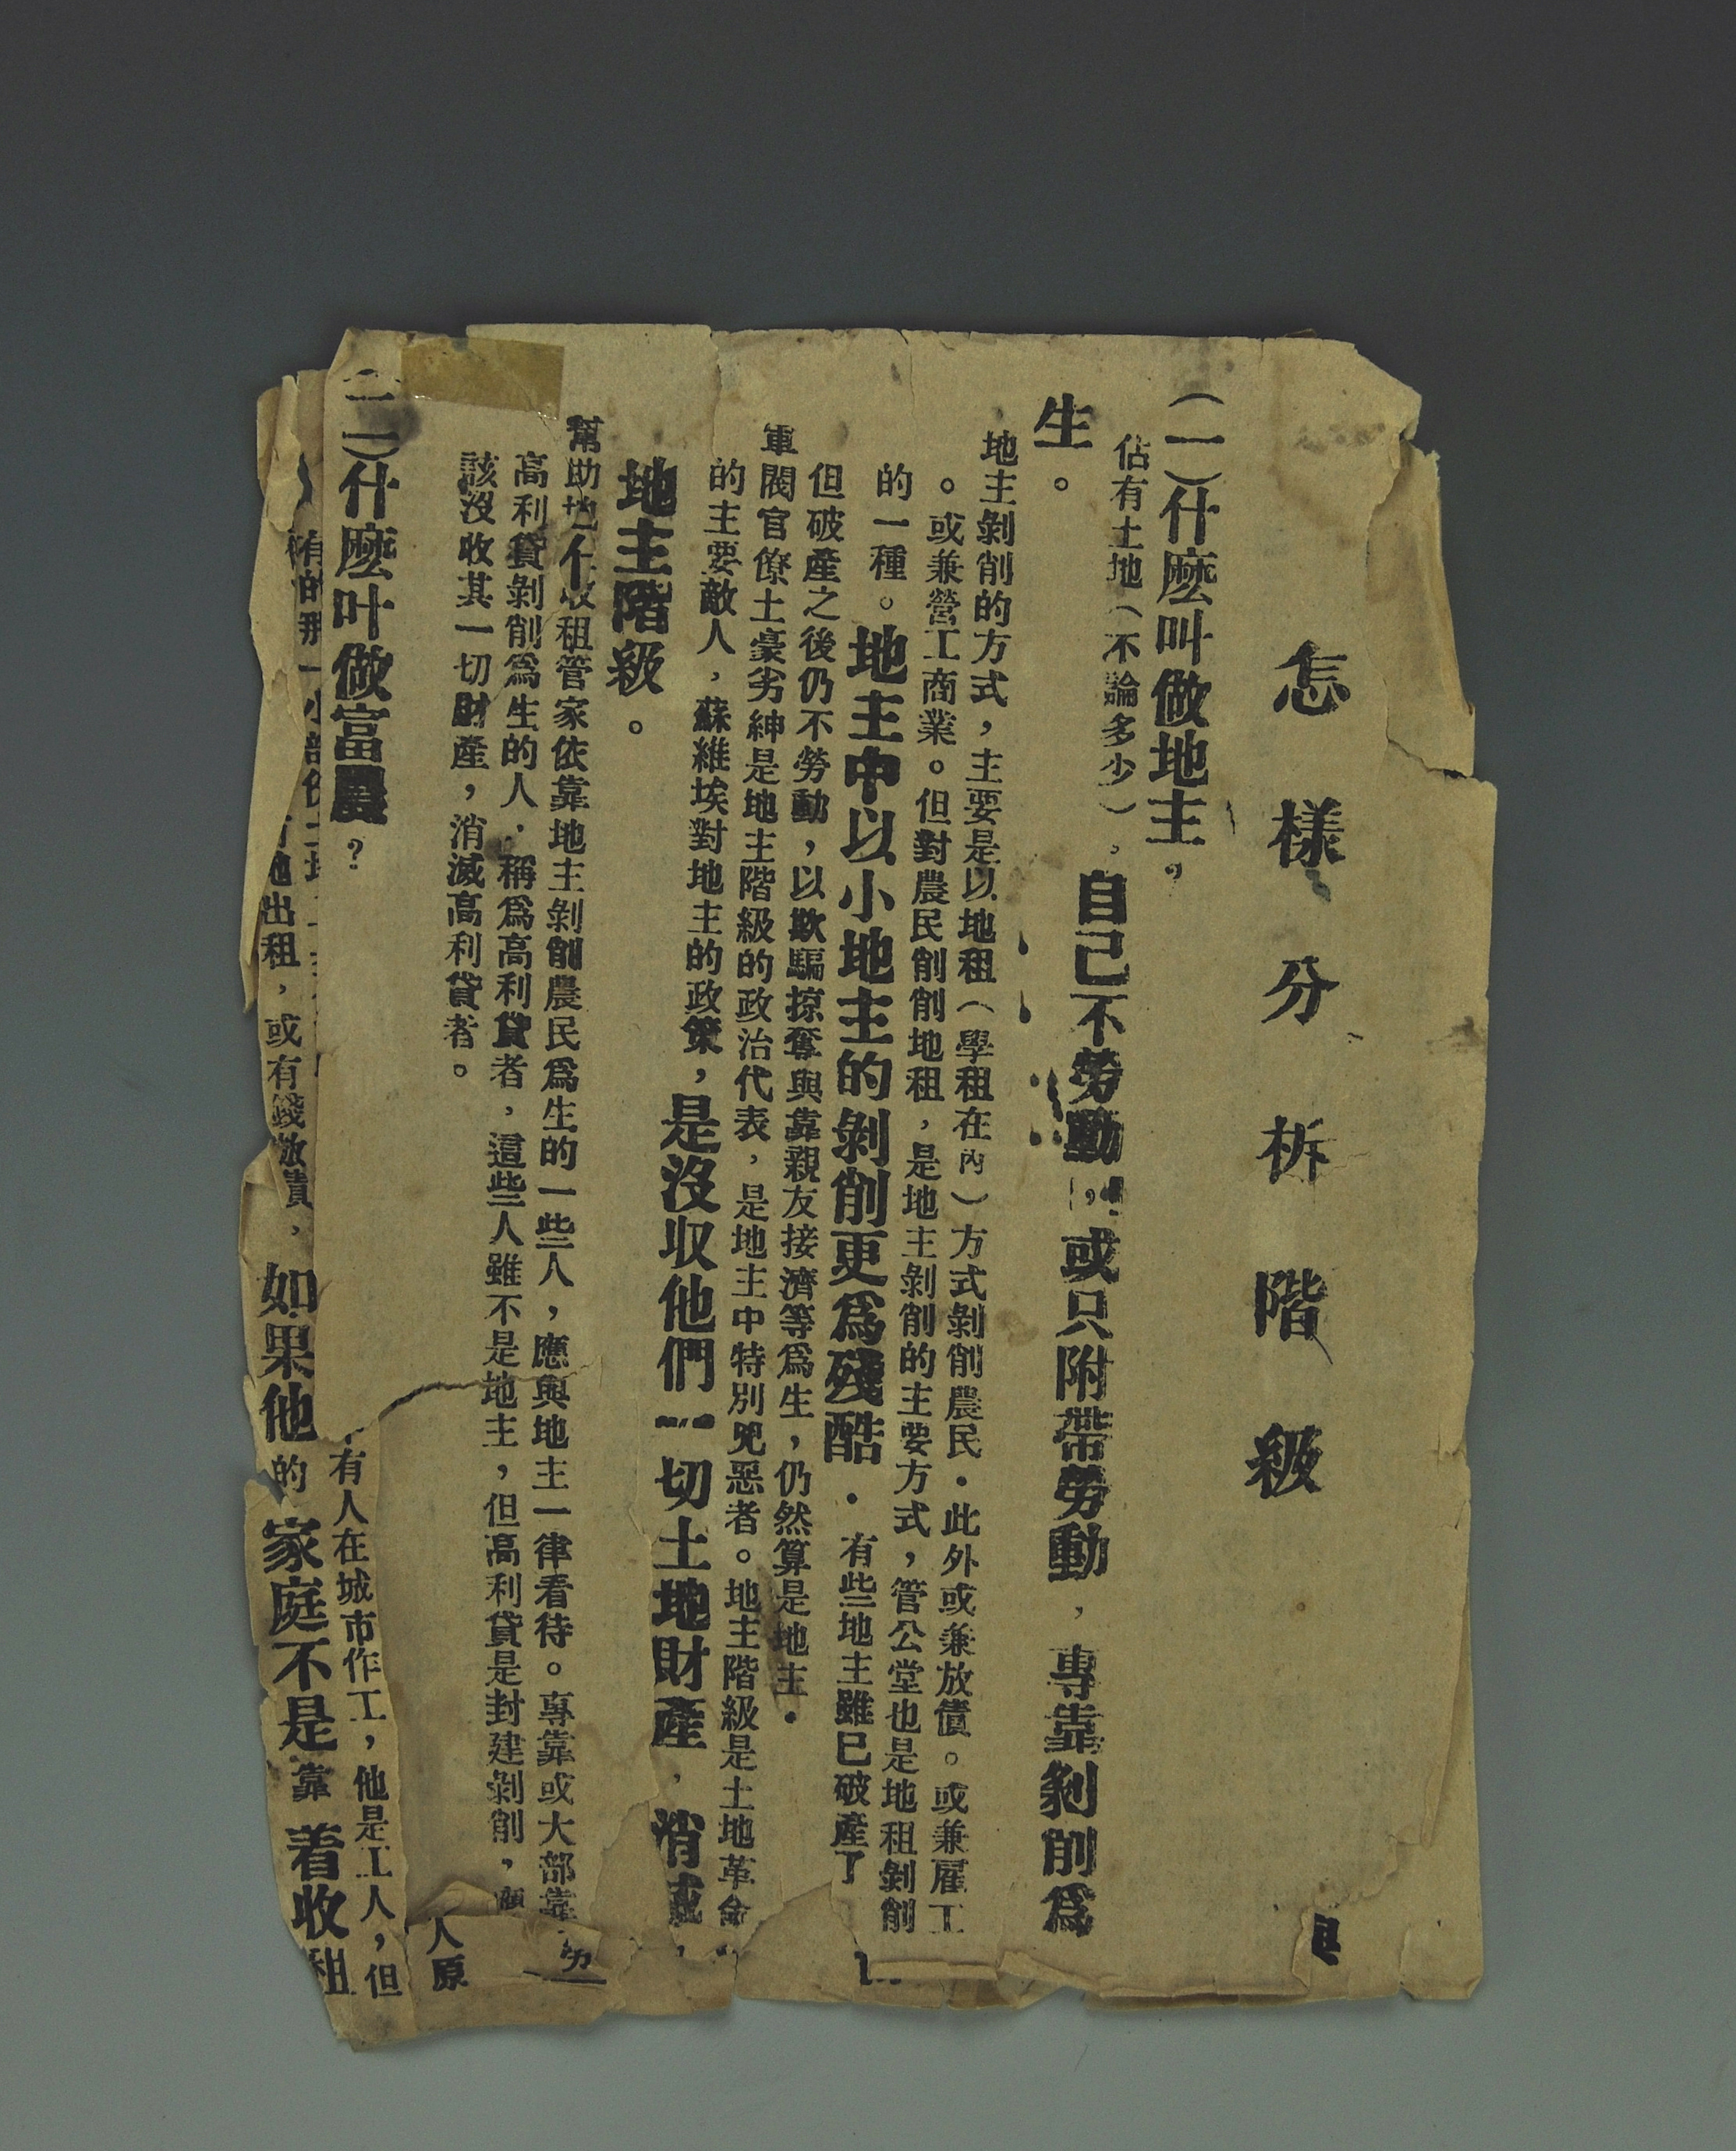 怎樣分柝階級
(一)什麽叫做地主。
佔有土地(不論多少)，自己不勞動，或只附帶勞動，專靠剝削爲
生。
地主剝削的方式，主要是以地租(學租在內)方式剝削農民．此外或兼放債。或兼雇工
。或兼營工商業。但對農民削削地租，是地主剝削的主要方式，管公堂也是地租剝削
的一種。地主中以小地主的剝削更爲殘酷．有些地主雖已破產了
但破產之後仍不勞動，以欺騙掠奪與靠親友接濟等爲生，仍然算是地主．
軍閥官僚土豪劣紳是地主階級的政治代表，是地主中特別兇惡者。地主階級是土地革命
的主要敵人，蘇維埃對地主的政策，是沒收他們一切土地財產，消滅
地主階級。
幫助地 收租管家依靠地主剝削農民爲生的一些人，應與地主一律看待。專靠或大部靠
高利貸剝削爲生的人．稱爲高利貸者，這些人雖不是地主，但高利貸是封建剝削，應
該沒收其一切財產，消滅高利貸者。
(二)什麽叶做富農？
有人在城市作工，他是工人，但
有的那一小部份
地出租，或有錢放債，如果他的家庭不是靠着收租
人原